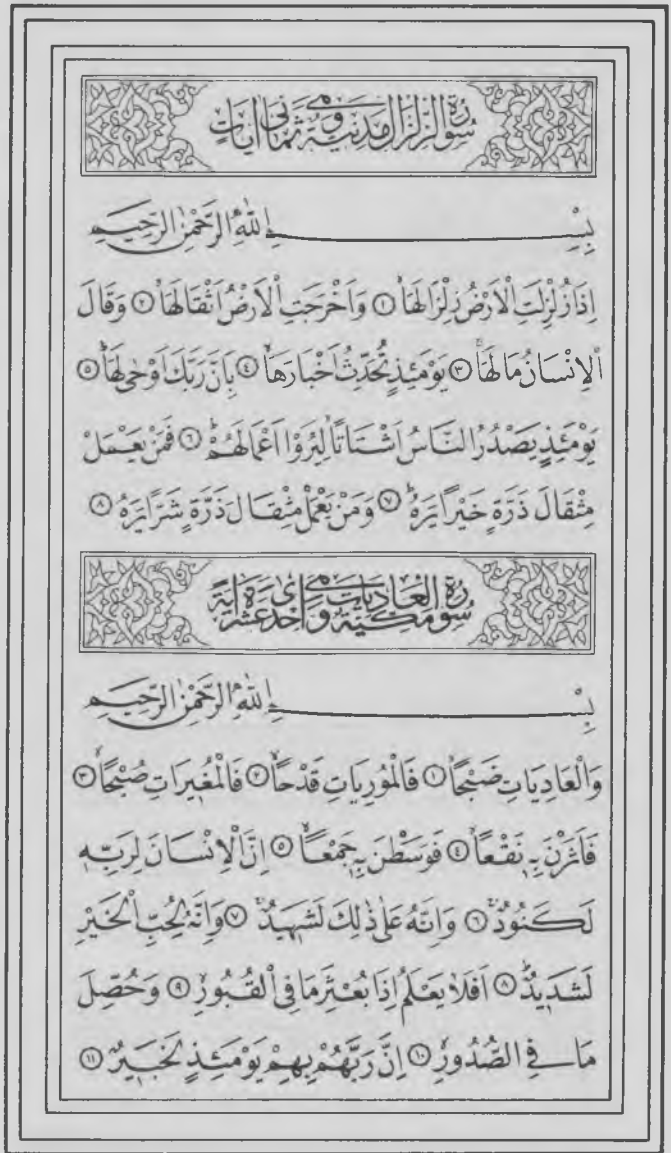 سورة الزلزال مدنية وهي ثماني آيات
بِسْــــــمِ اللّٰهِ الرَّحْمٰنِ الرَّحٖيمِ
اِذَا زُلْزِلَتِ الْاَرْضُ زِلْزَالَهَاۙ ١ وَاَخْرَجَتِ الْاَرْضُ اَثْقَالَهَاۙ ٢ وَقَالَ
الْاِنْسَانُ مَا لَهَاۚ ٣ يَوْمَئِذٍ تُحَدِّثُ اَخْبَارَهَاۙ ٤ بِاَنَّ رَبَّكَ اَوْحٰى لَهَاۜ ٥
يَوْمَئِذٍ يَصْدُرُ النَّاسُ اَشْتَاتًا لِيُرَوْا اَعْمَالَهُمْۜ ٦ فَمَنْ يَعْمَلْ
مِثْقَالَ ذَرَّةٍ خَيْرًا يَرَهُۜ ٧ وَمَنْ يَعْمَلْ مِثْقَالَ ذَرَّةٍ شَرًّا يَرَهُ ٨
سورة العاديات مكية وهي إحدى عشرة آية
بِسْــــــمِ اللّٰهِ الرَّحْمٰنِ الرَّحٖيمِ
وَالْعَادِيَاتِ ضَبْحًاۙ ١ فَالْمُورِيَاتِ قَدْحًاۙ ٢ فَالْمُغٖيرَاتِ صُبْحًاۙ ٣
فَاَثَرْنَ بِهٖ نَقْعًاۙ ٤ فَوَسَطْنَ بِهٖ جَمْعًاۙ ٥ اِنَّ الْاِنْسَانَ لِرَبِّهٖ
لَكَنُودٌۚ ٦ وَاِنَّهُ عَلٰى ذٰلِكَ لَشَهٖيدٌۚ ٧ وَاِنَّهُ لِحُبِّ الْخَيْرِ
لَشَدٖيدٌۜ ٨ اَفَلَا يَعْلَمُ اِذَا بُعْثِرَ مَا فِي الْقُبُورِۙ ٩ وَحُصِّلَ
مَا فِي الصُّدُورِۙ ١٠ اِنَّ رَبَّهُمْ بِهِمْ يَوْمَئِذٍ لَخَبٖيرٌ ١١